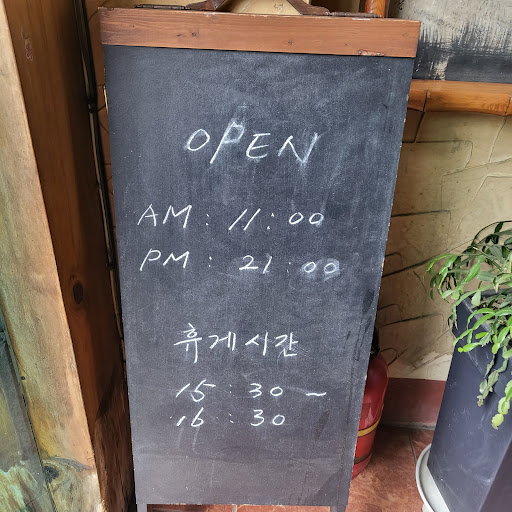 OPEN
AM : 11 : 00
PM : 21 : 00
휴게시간
15 : 30 ~
16 : 30